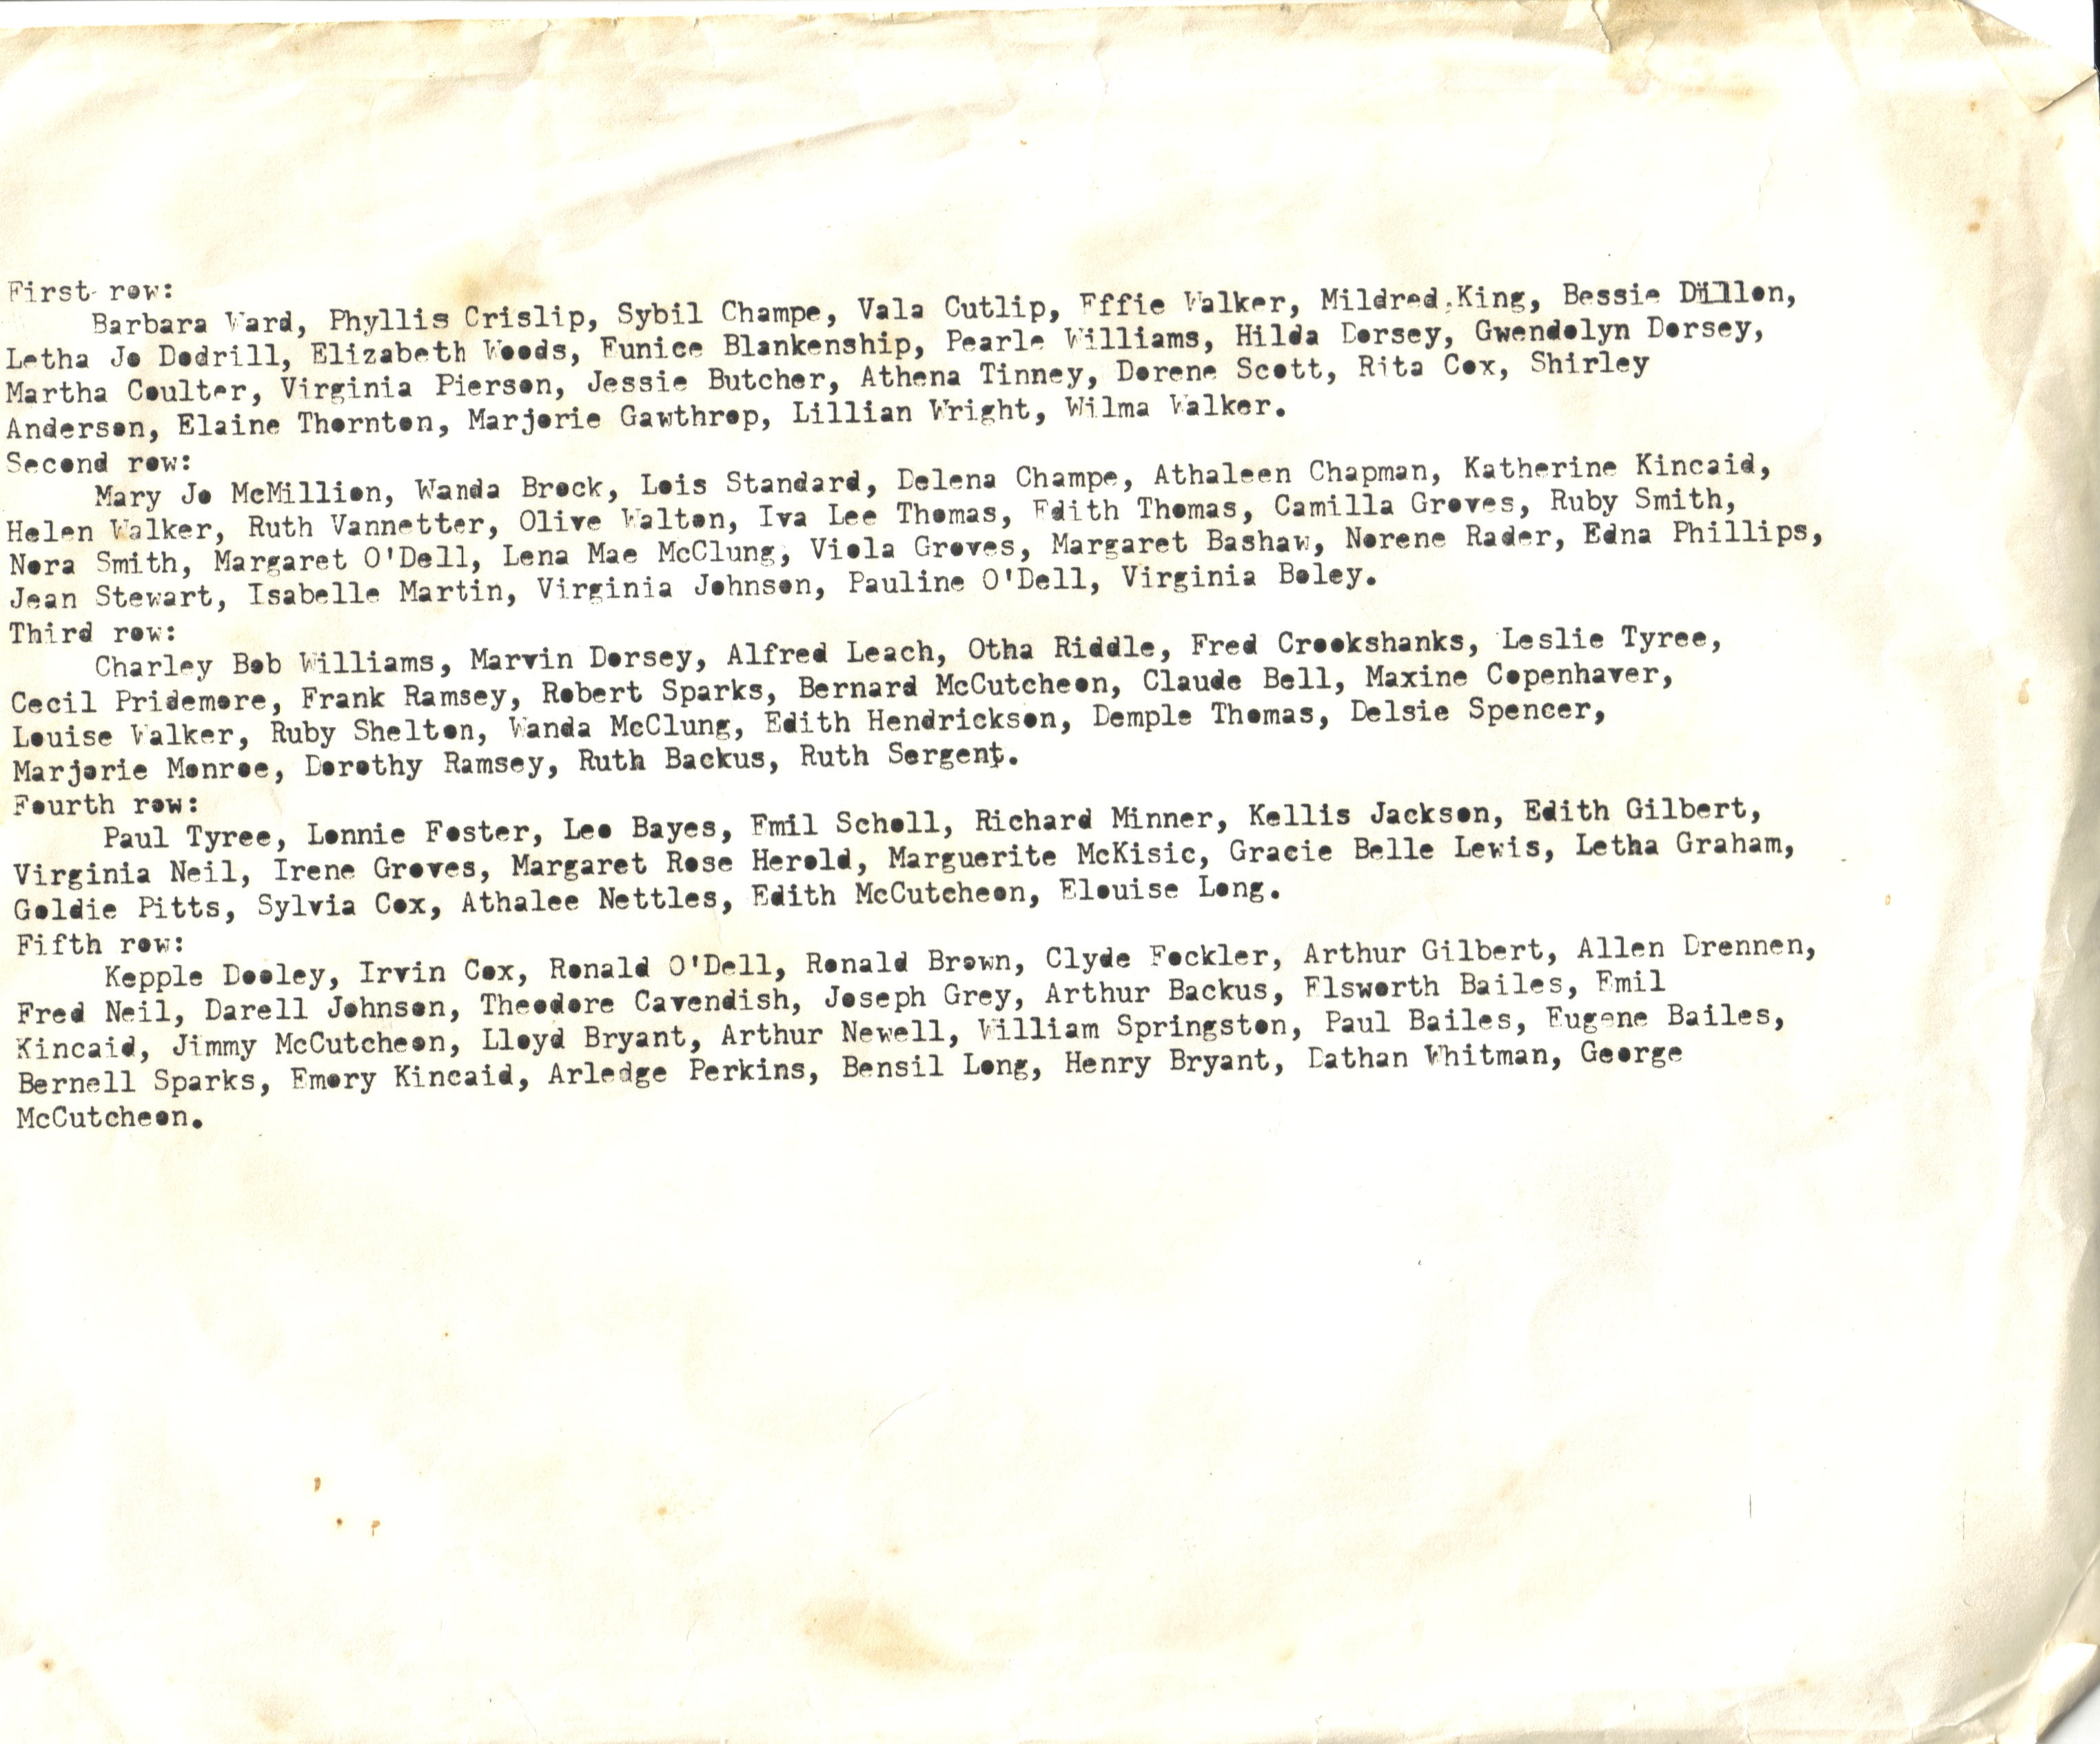 First row:
Barbara Ward, Phyllis Crislip, Sybil Champe, Vala Cutlip, Effie Walker, Mildred King, Bessie Dillon,
Letha Jo Dodrill, Elizabeth Woods, Eunice Blankenship, Pearle Williams, Hilda Dorsey, Gwendolyn Dorsey,
Martha Coulter, Virginia Pierson, Jessie Butcher, Athena Tinney, Dorene Scott, Rita Cox, Shirley
Anderson, Elaine Thornton, Marjorie Gawthrop, Lillian Wright, Wilma Walker.
Second row:
Mary Jo McMillion, Wanda Brock, Lois Standard, Delena Champe, Athaleen Chapman, Katherine Kincaid,
Helen Walker, Ruth Vannetter, Olive Walton, Iva Lee Thomas, Edith Thomas, Camilla Groves, Ruby Smith,
Nora Smith, Margaret O'Dell, Lena Mae McClung, Viola Groves, Margaret Bashaw, Norene Rader, Edna Phillips,
Jean Stewart, Isabelle Martin, Virginia Johnson, Pauline O'Dell, Virginia Boley.
Third row:
Charley Bob Williams, Marvin Dorsey, Alfred Leach, Otha Riddle, Fred Crookshanks, Leslie Tyree,
Cecil Pridemore, Frank Ramsey, Robert Sparks, Bernard McCutcheon, Claude Bell, Maxine Copenhaver,
Louise Walker, Ruby Shelton, Wanda McClung, Edith Hendrickson, Demple Thomas, Delsie Spencer,
Marjorie Monroe, Dorothy Ramsey, Ruth Backus, Ruth Sergent.
Fourth row:
Paul Tyree, Lonnie Foster, Leo Bayes, Emil Scholl, Richard Minner, Kellis Jackson, Edith Gilbert,
Virginia Neil, Irene Groves, Margaret Rose Herold, Marguerite McKisic, Gracie Belle Lewis, Letha Graham,
Goldie Pitts, Sylvia Cox, Athalee Nettles, Edith McCutcheon, Elouise Long.
Fifth row:
Kepple Dooley, Irvin Cox, Ronald O'Dell, Ronald Brown, Clyde Fockler, Arthur Gilbert, Allen Drennen,
Fred Neil, Darell Johnson, Theodore Cavendish, Joseph Grey, Arthur Backus, Elsworth Bailes, Emil
Kincaid, Jimmy McCutcheon, Lloyd Bryant, Arthur Newell, William Springston, Paul Bailes, Eugene Bailes,
Bernell Sparks, Emory Kincaid, Arledge Perkins, Bensil Long, Henry Bryant, Dathan Whitman, George
McCutcheon.